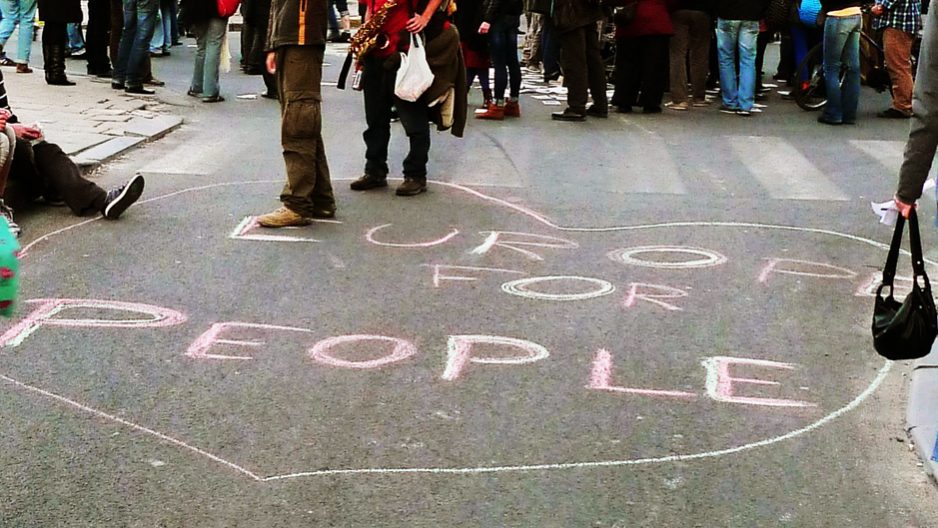 EUROPE
FOR
PEOPLE